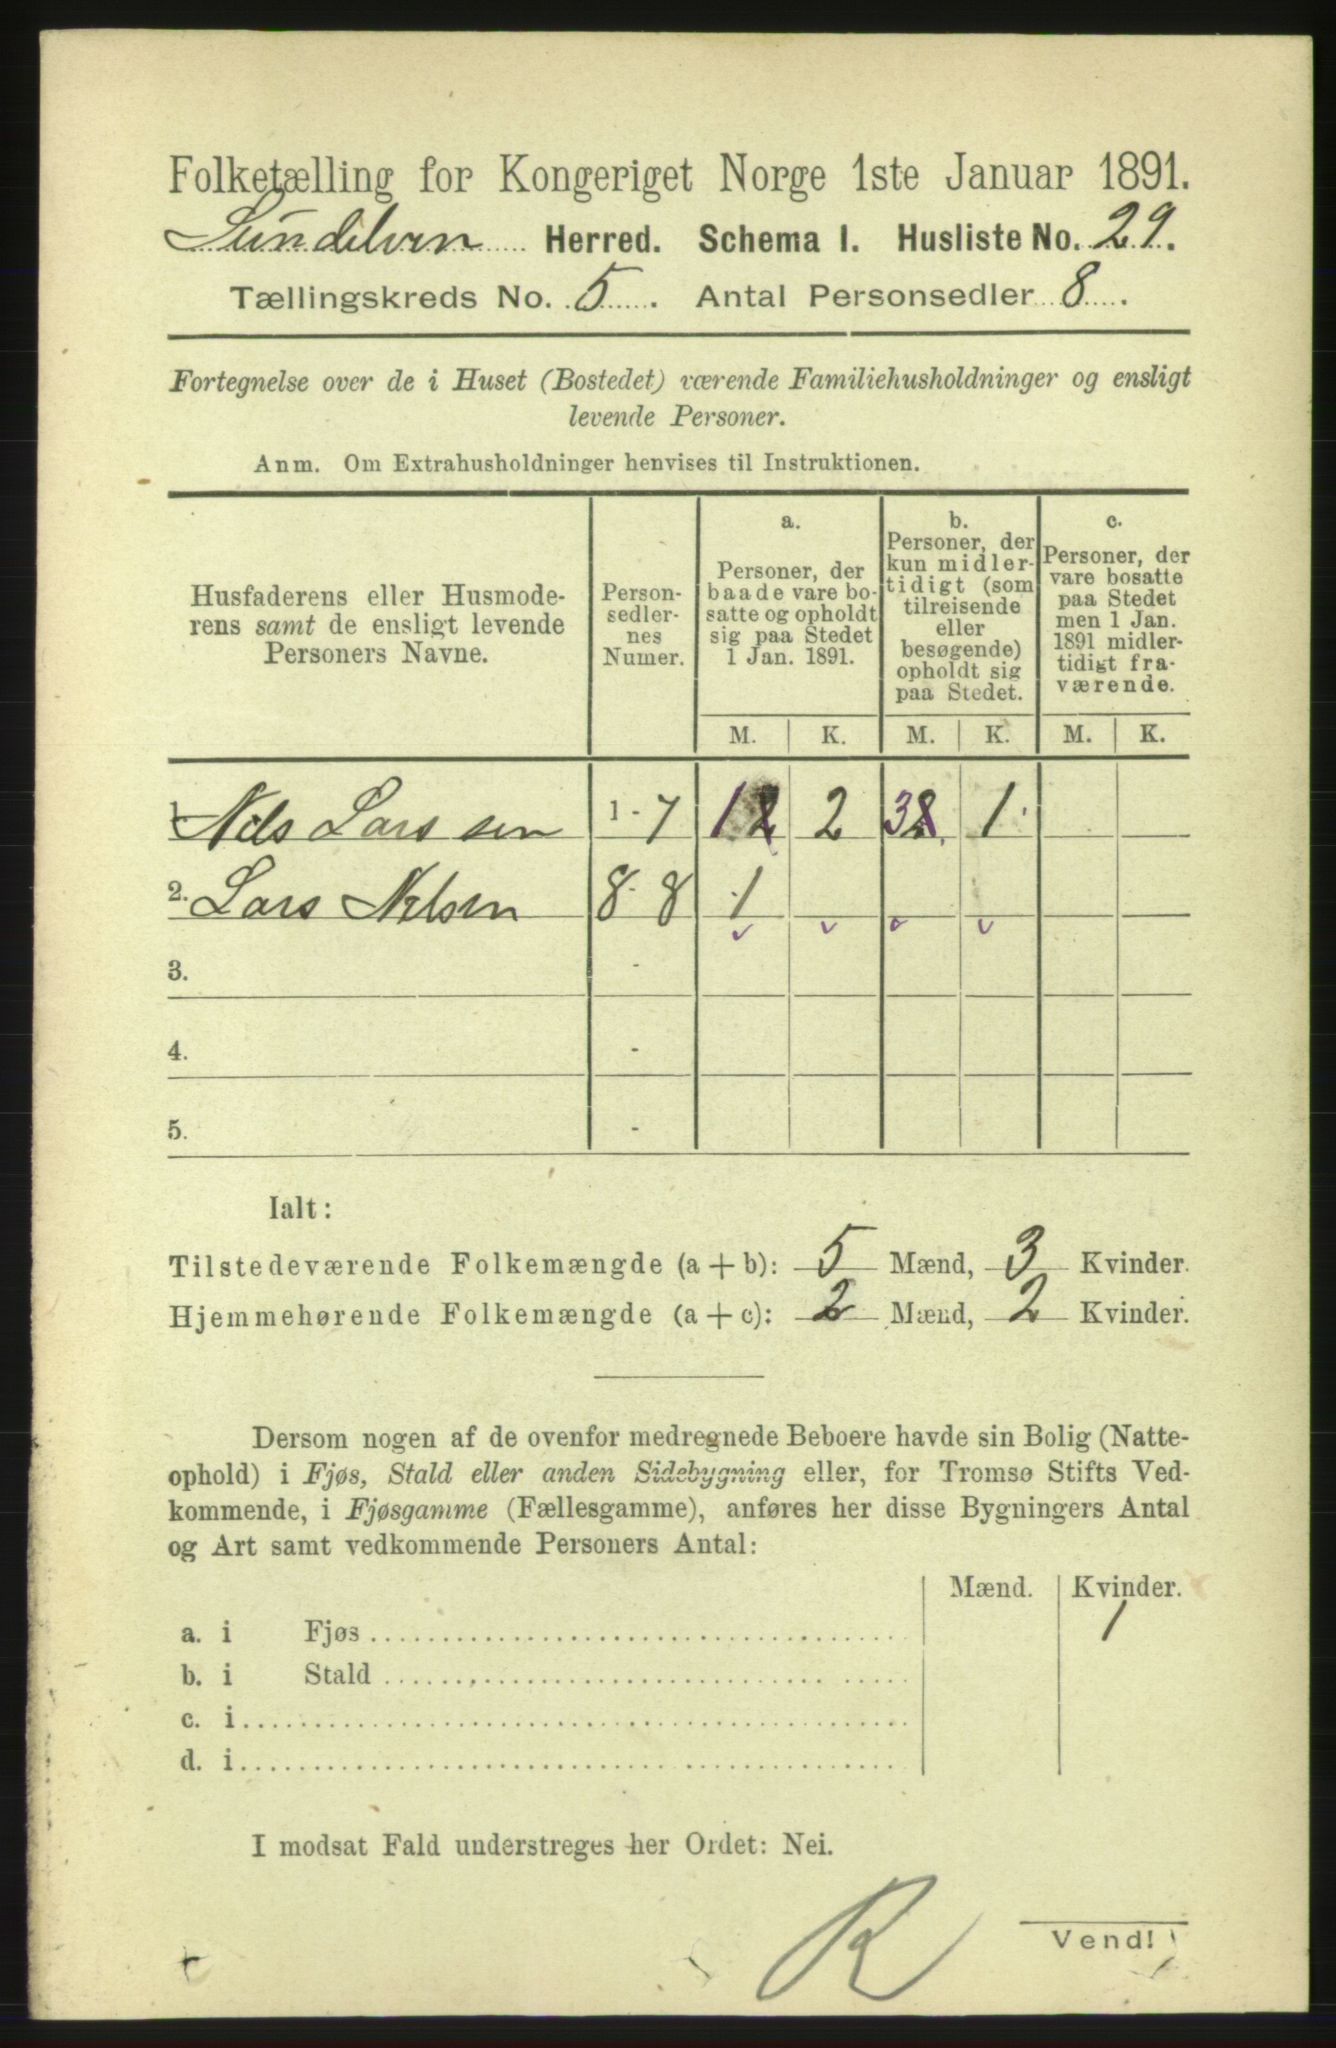 Folketælling for Kongeriget Norge 1ste Januar 1891.
Sundelven Herred. Schema I. Husliste No. 29.
Tællingskreds No. 5. Antal Personsedler 8.
Fortegnelse over de i Huset (Bostedet) værende Familiehusholdninger og ensligt
levende Personer.
Anm. Om Extrahusholdninger henvises til Instruktionen.
Husfaderens eller Husmode-
rens samt de ensligt levende
Personers Navne.
Person-
sedler-
nes
Numer.
a.
Personer, der
baade vare bo-
satte og opholdt
sig paa Stedet
1 Jan. 1891.
b.
Personer, der
kun midler-
tidigt (som
tilreisende
eller
besøgende)
opholdt sig
paa Stedet.
c.
Personer, der
vare bosatte
paa Stedet
men 1 Jan.
1891 midler-
tidigt fra-
værende.
M. K. M. K. M. K.
1. Nels Larssen 1 - 7 1 2 2 3 2 1
2. Lars Nelsen 8 - 8 1
3. -
4. -
5. -
Ialt:
Tilstedeværende Folkemængde (a + b): 5 Mænd, 3 Kvinder.
Hjemmehørende Folkemængde (a + c): 2 Mænd, 2 Kvinder.
Dersom nogen af de ovenfor medregnede Beboere havde sin Bolig (Natte-
ophold) i Fjøs, Stald eller anden Sidebygning eller, for Tromsø Stifts Ved-
kommende, i Fjøsgamme (Fællesgamme), anføres her disse Bygningers Antal
og Art samt vedkommende Personers Antal:
Mænd. Kvinder.
a. i Fjøs 1
b. i Stald
c. i
d. i
I modsat Fald understreges her Ordet: Nei.
R
Vend!